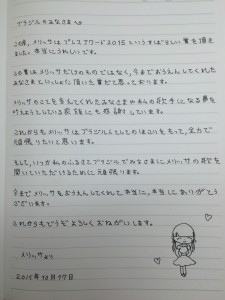 ブラジルのみなさまへ
この度、メリッサは プレスアワード2015 というすばらしい賞を頂き
ました。本当にうれしいです。
この賞は、メリッサだけのものではなく、今までおうえんしてくれた
みなさまといっしょに頂いた賞だと思っております。
メリッサのことを支えてくれたみなさまや私の歌手になる夢を
叶えようとしている家族にも感謝しています。
これからも、メリッサはブラジル人としてのほこりをもって、全力で
頑張りたいと思います。
そして、いつか私のふるさとブラジルでみなさまにメリッサの歌を
聞いていただけるために頑張ります。
今までメリッサをおうえんしてくれた本当に、本当にありがとう
ございます。
これからもどうぞよろしくおねがいします。
メリッサより
2015年10月17日